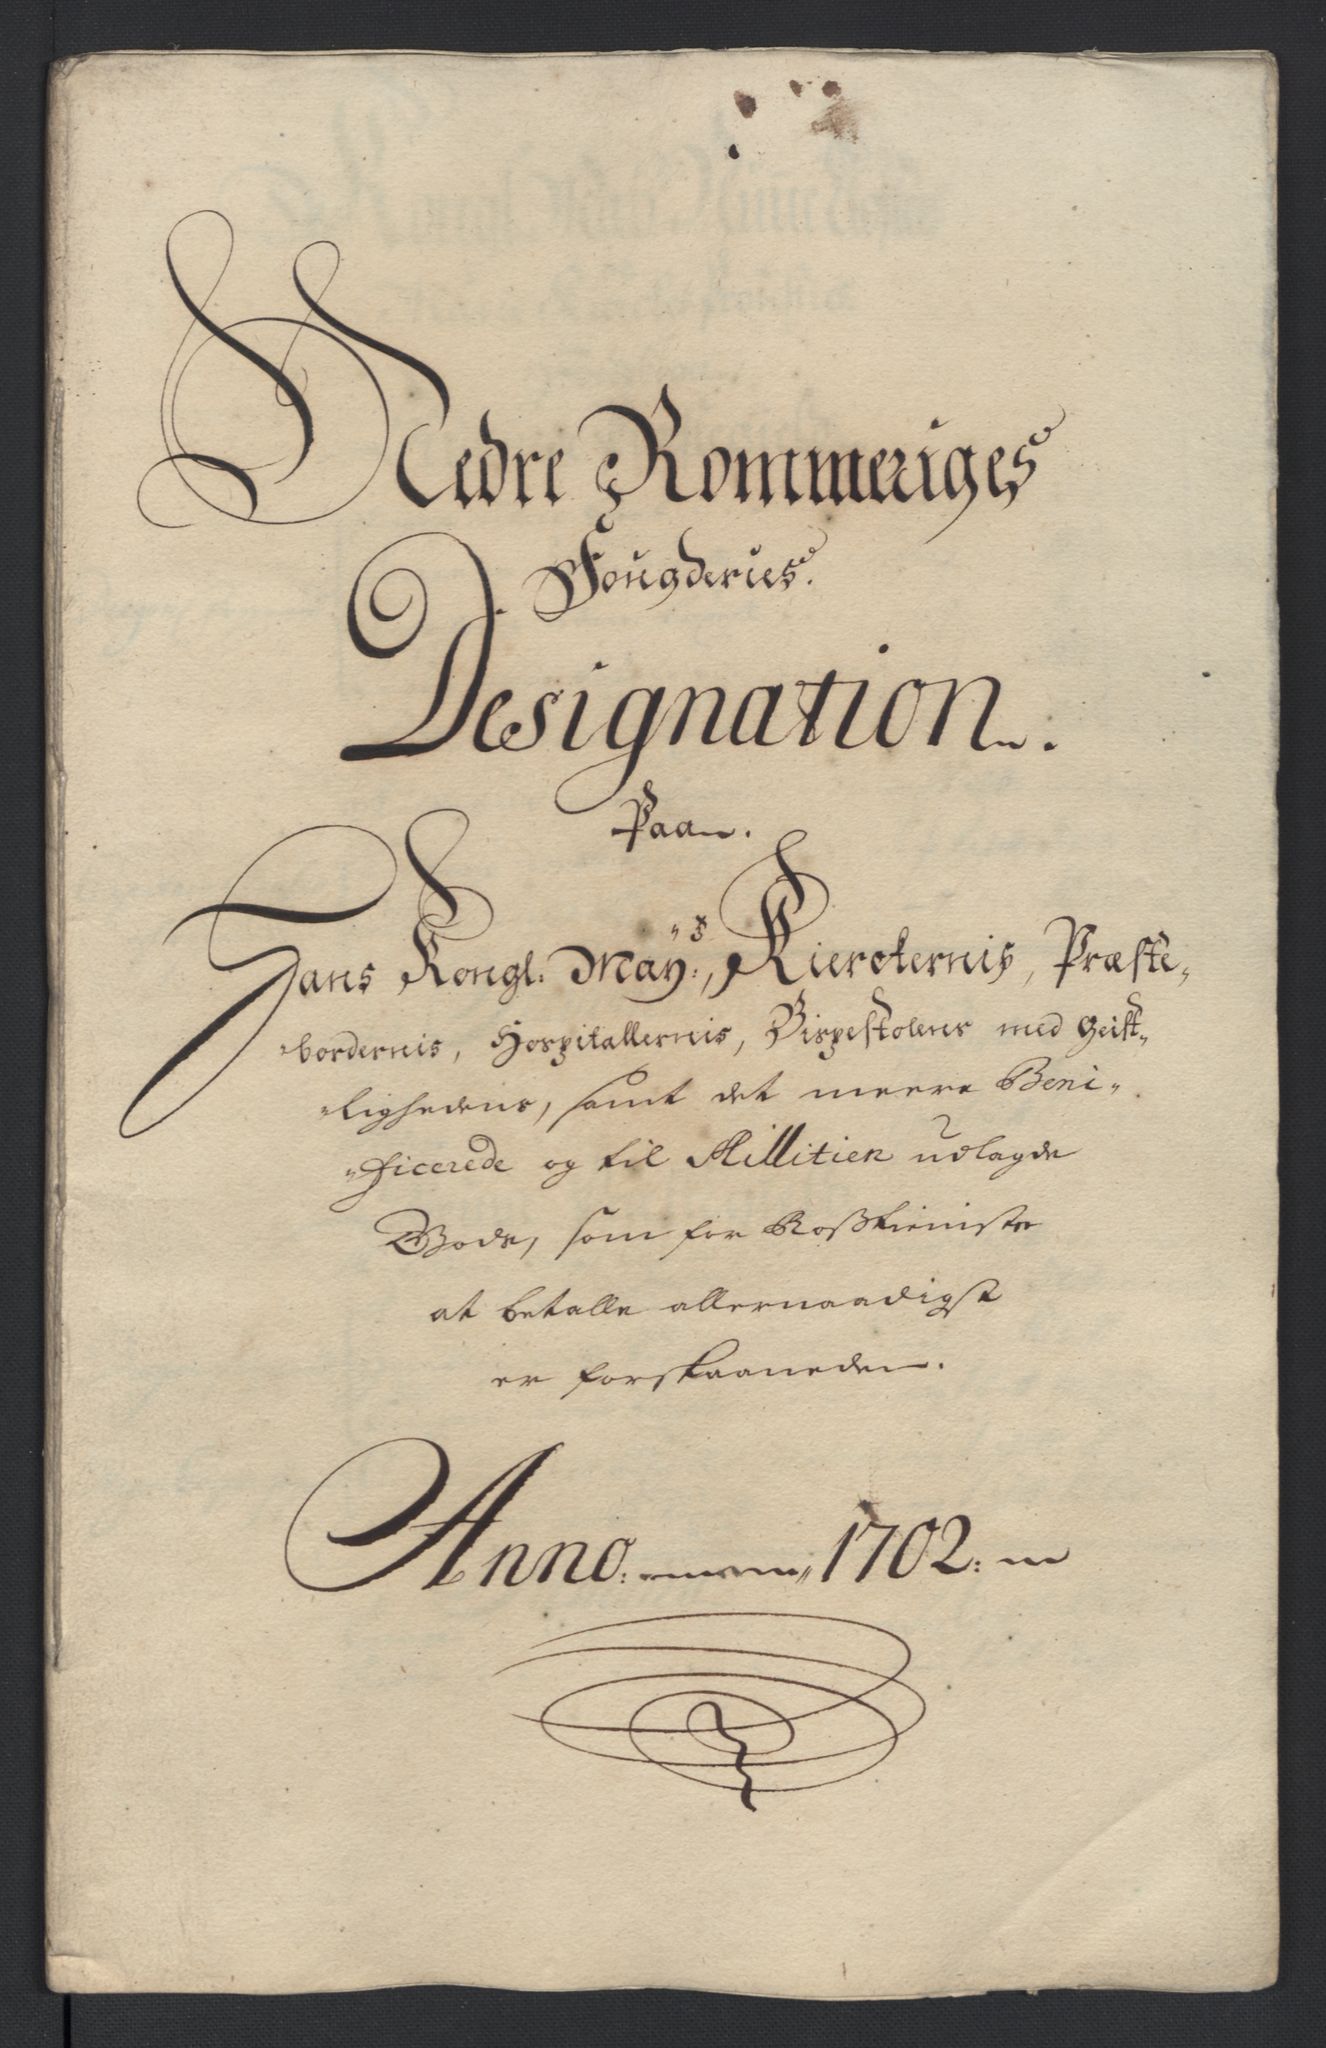 Nedre Rommeriges
Fougderies.
Designation.
Paa.
Hans Kongl: May:ts, Kierckernis, Præste-
bordernis, Hospitallernis, Bispestolens med Geist-
lighedens, samt det meere Beni-
ficerede og til Millitien udlagde
Gods, som for Roßtieniste
at betalle allernaadigst
er forskaaneden.
Anno: 1702: